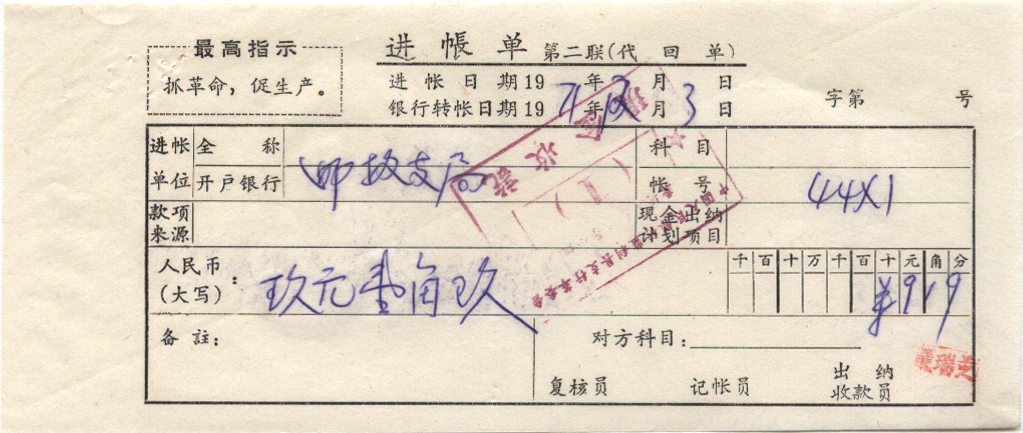 最高指示
抓革命，促生产。
进帐单 第二联（代回单）
进帐日期19 年 月 日
银行转帐日期1971年12月3日
字第 号
进帐单位 全称
开户银行
支局
科目
帐号 44X1
款项来源
现金出纳计划项目
人民币（大写）：玖元壹角玖
千百十万千百十元角分
¥919
备註：
对方科目：
复核员 记帐员 出纳收款员
现金收讫